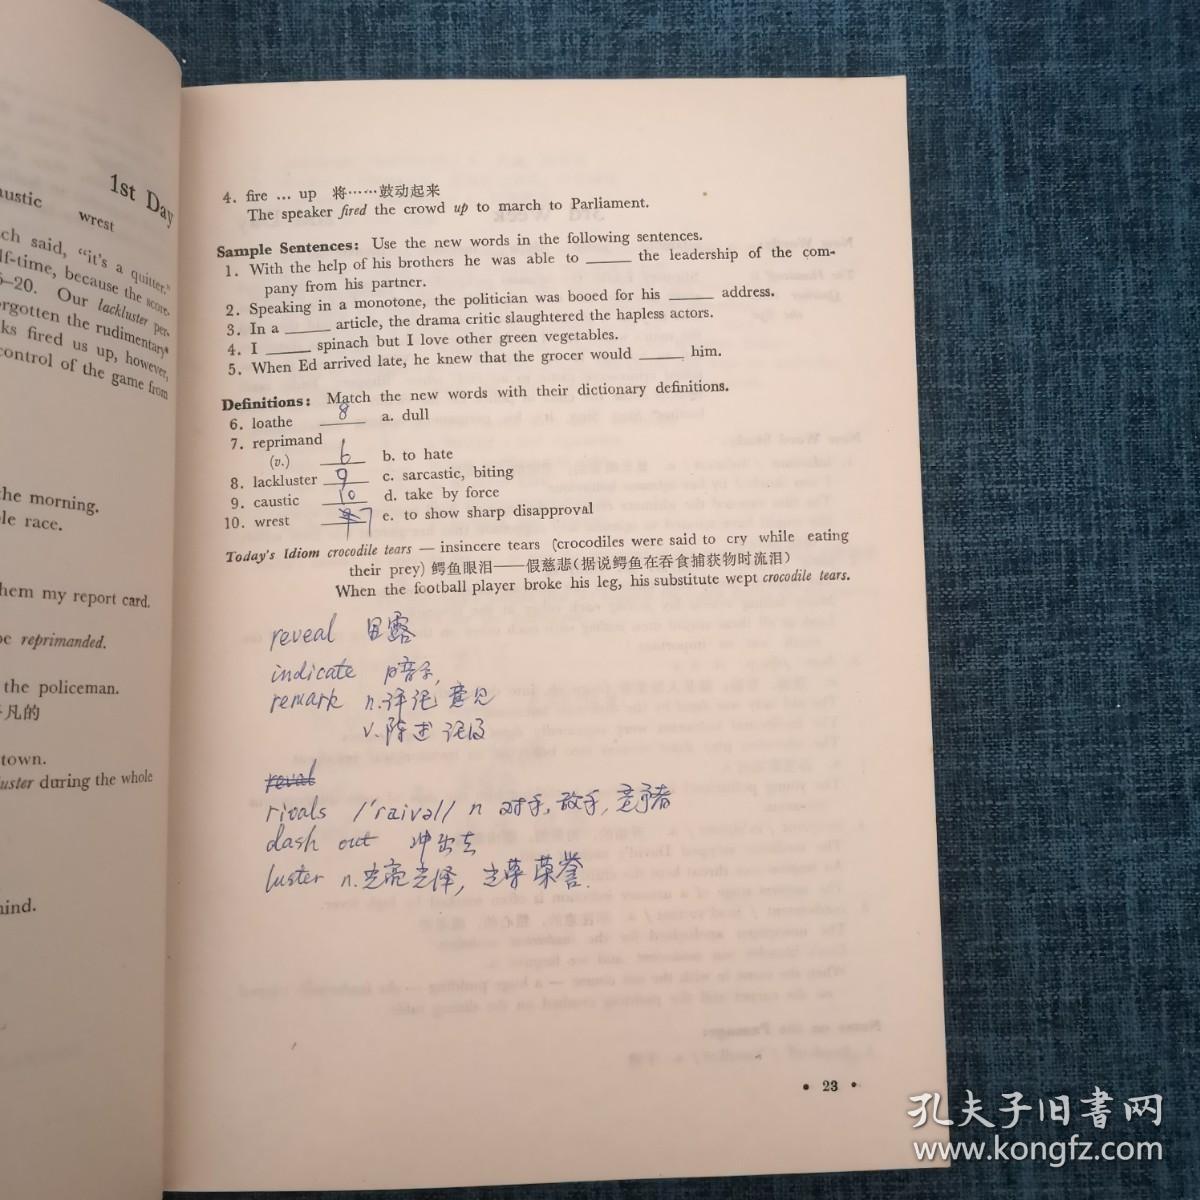 1st Day
austic wrest
ch said, "it's a quitter."
lf-time, because the score.
6-20. Our lackluster per-
rgotten the rudimentary
ks fired us up, however,
control of the game from
he morning.
le race.
hem my report card.
be reprimanded.
the policeman.
凡的
town.
uster during the whole
ind.
4. fire ... up 将……鼓动起来
The speaker fired the crowd up to march to Parliament.
Sample Sentences: Use the new words in the following sentences.
1. With the help of his brothers he was able to _____ the leadership of the com-
pany from his partner.
2. Speaking in a monotone, the politician was booed for his _____ address.
3. In a _____ article, the drama critic slaughtered the hapless actors.
4. I _____ spinach but I love other green vegetables.
5. When Ed arrived late, he knew that the grocer would _____ him.
Definitions: Match the new words with their dictionary definitions.
6. loathe 8 a. dull
7. reprimand
(v.) 6 b. to hate
8. lackluster 9 c. sarcastic, biting
9. caustic 10 d. take by force
10. wrest 7 e. to show sharp disapproval
Today's Idiom crocodile tears — insincere tears (crocodiles were said to cry while eating
their prey) 鳄鱼眼泪——假慈悲(据说鳄鱼在吞食捕获物时流泪)
When the football player broke his leg, his substitute wept crocodile tears.
reveal 露
indicate 暗示,
remark n. 评论 意见
v. 陈述 评论
reval
rivals /'raivəl/ n 对手, 敌手, 竞争者
dash out 冲出去
luster n. 光亮 光泽, 光荣 荣誉.
• 23 •
孔夫子旧書网
www.kongfz.com